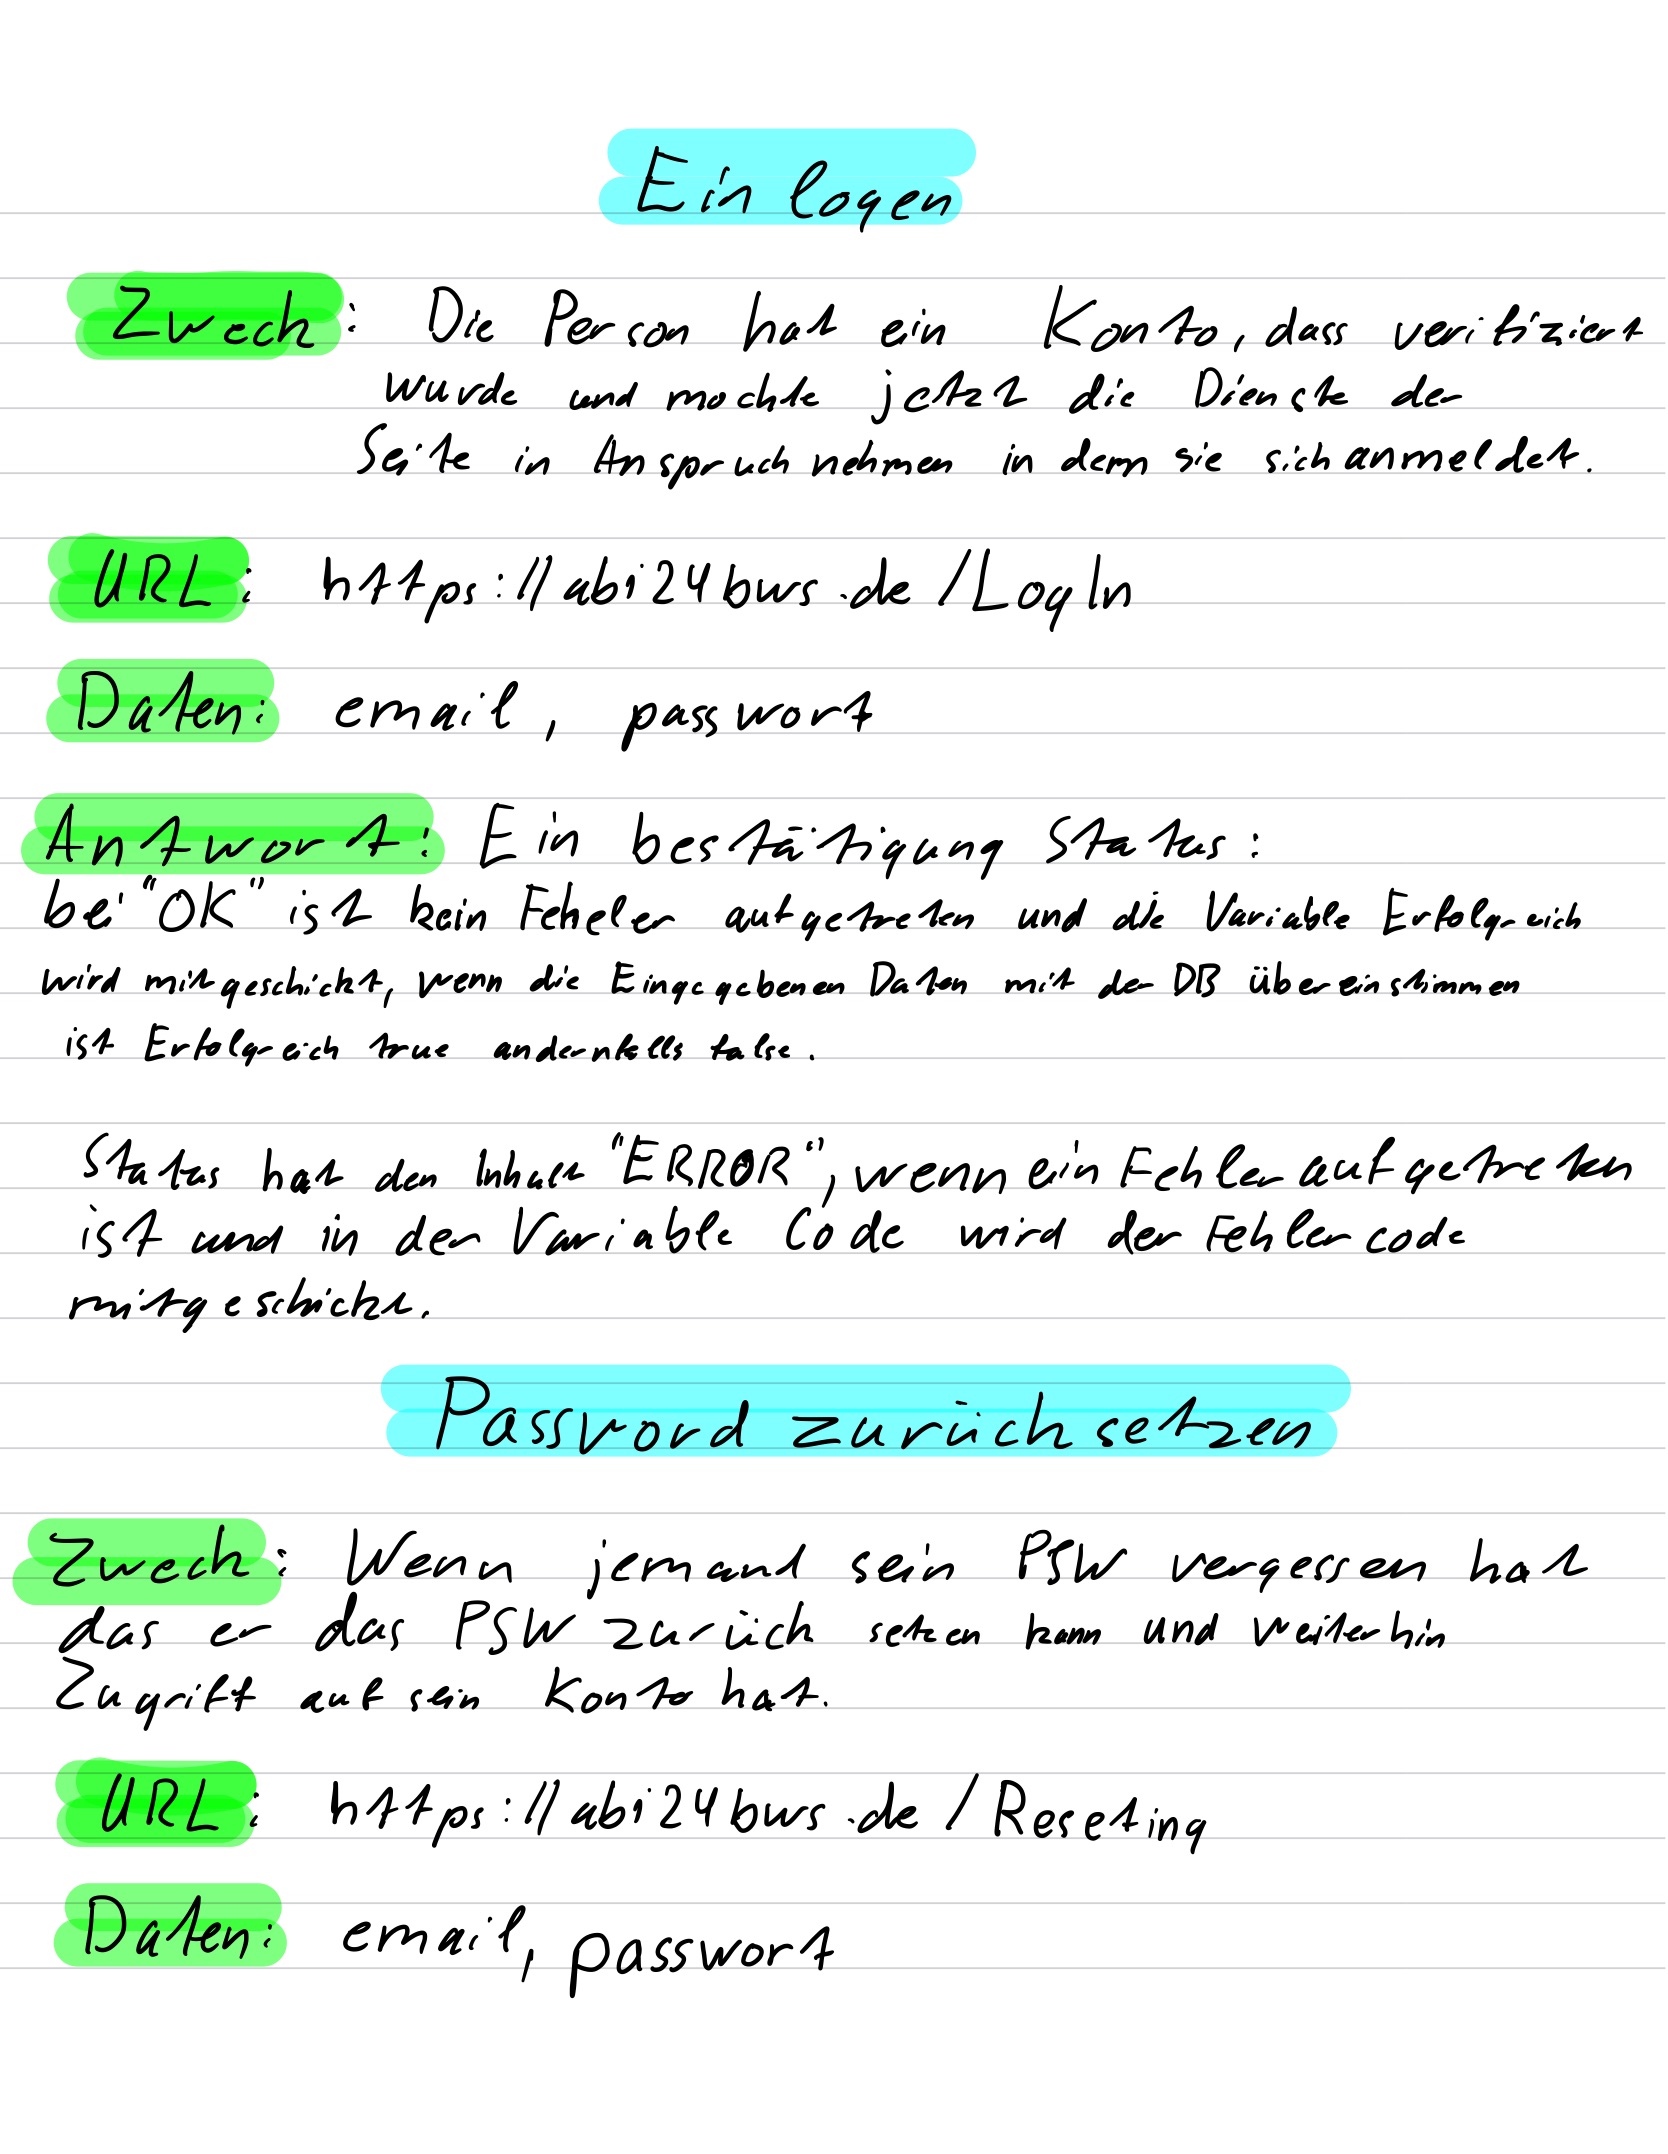 Ein logen
Zweck: Die Person hat ein Konto, dass verifiziert
wurde und mochte jetzt die Dienste der
Seite in Anspruch nehmen in dem sie sich anmeldet.
URL: https://abi24bws.de/LogIn
Daten: email, passwort
Antwort: Ein bestätigung Status:
bei "OK" ist kein Feheler aufgetreten und die Variable Erfolgreich
wird mitgeschickt, wenn die Eingegebenen Daten mit der DB übereinstimmen
ist Erfolgreich true andernfalls false.
Status hat den Inhalt "ERROR", wenn ein Fehler aufgetreten
ist und in der Variable Code wird der Fehlercode
mitgeschickt.
Password zurück setzen
Zweck: Wenn jemand sein PSW vergessen hat
das er das PSW zurück setzen kann und weiterhin
Zugriff auf sein Konto hat.
URL: https://abi24bws.de/Reseting
Daten: email, passwort